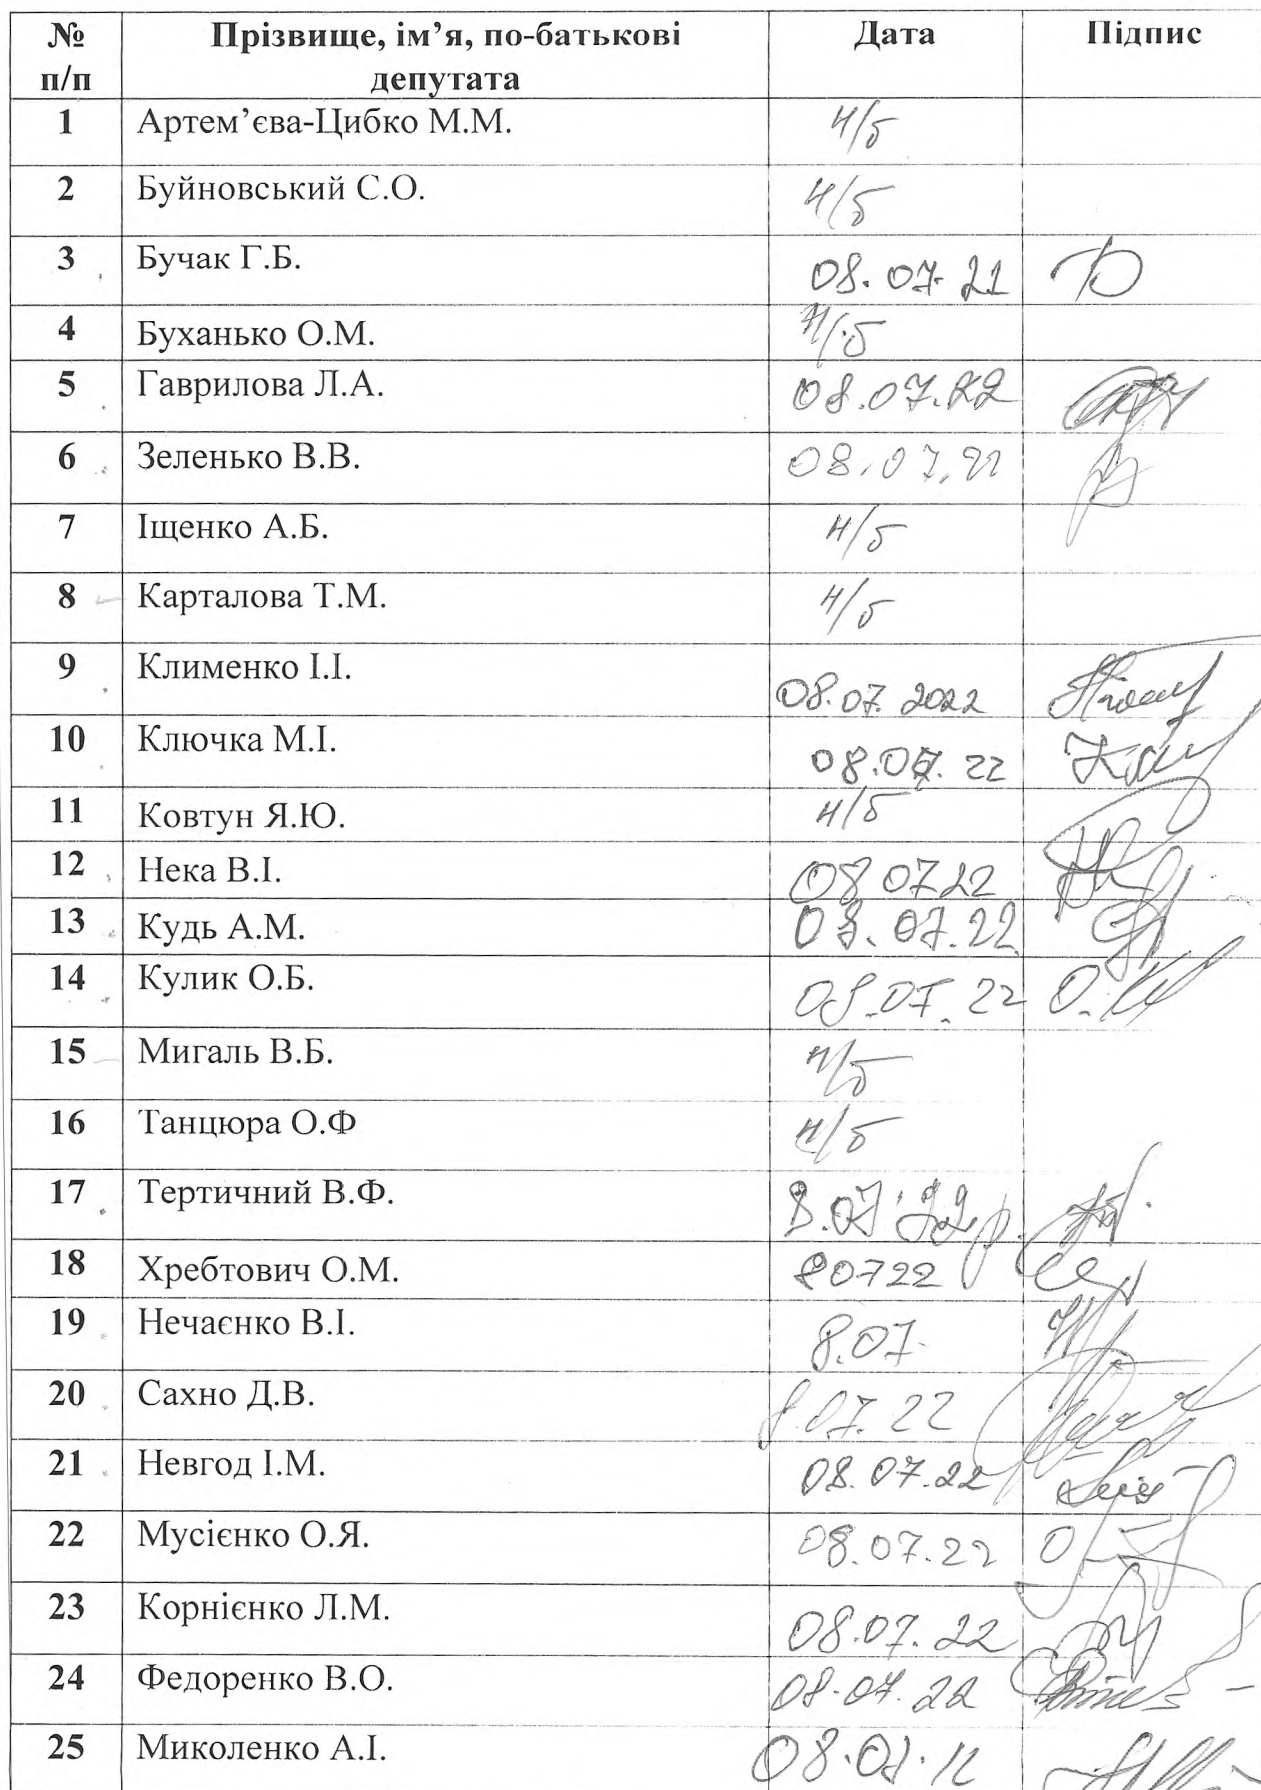 № Прізвище, ім’я, по-батькові Дата Підпис
п/п депутата
1 Артем’єва-Цибко М.М. н/б
2 Буйновський С.О. н/б
3 Бучак Г.Б. 08.07.21
4 Буханько О.М. н/б
5 Гаврилова Л.А. 08.07.22
6 Зеленько В.В. 08.07.22
7 Іщенко А.Б. н/б
8 Карталова Т.М. н/б
9 Клименко І.І. 08.07.2022
10 Ключка М.І. 08.07.22
11 Ковтун Я.Ю. н/б
12 Нека В.І. 08.07.22
13 Кудь А.М. 08.07.22
14 Кулик О.Б. 08.07.22
15 Мигаль В.Б. н/б
16 Танцюра О.Ф н/б
17 Тертичний В.Ф. 8.07.22р.
18 Хребтович О.М. 80722
19 Нечаєнко В.І. 8.07.
20 Сахно Д.В. 8.07.22
21 Невгод І.М. 08.07.22
22 Мусієнко О.Я. 08.07.22
23 Корнієнко Л.М. 08.07.22
24 Федоренко В.О. 08.07.22
25 Миколенко А.І.